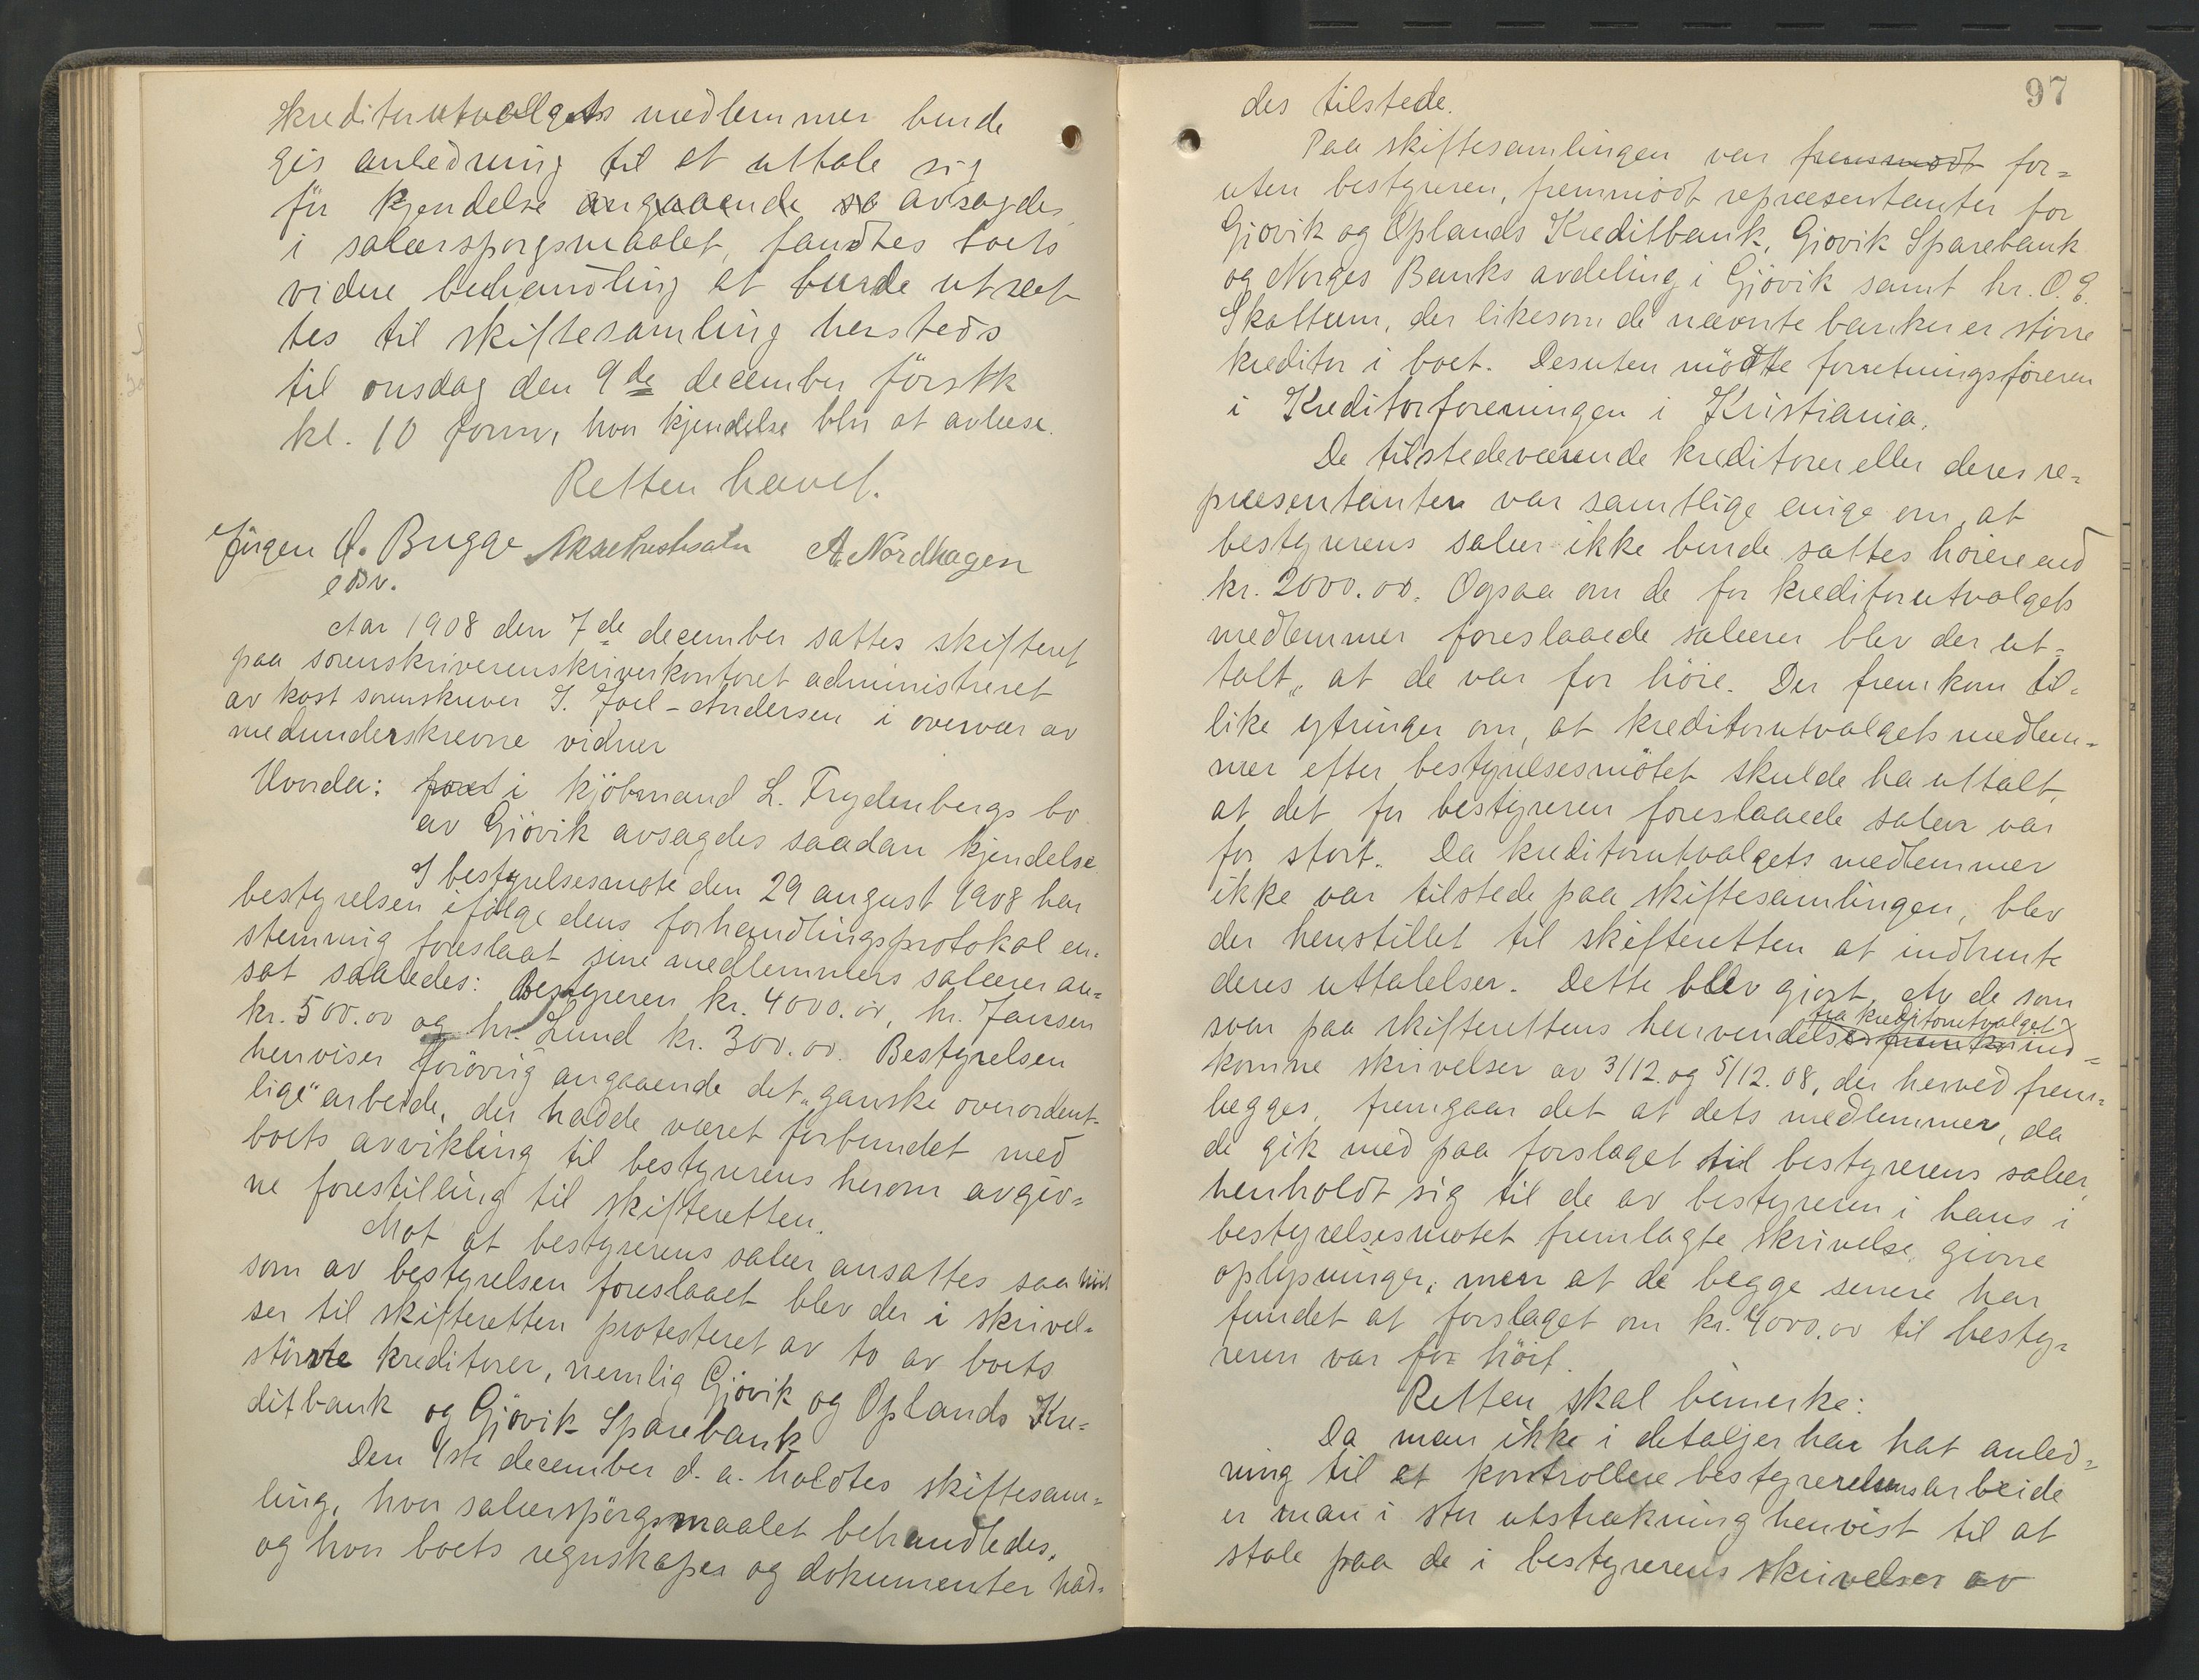 kreditorutvalgets medlemmer burde
gis anledning til at uttale sig
för kjendelse angaaende sa avsagdes
i salærsporgsmaalet, fandtes boets
videre behandling at burde utsæt
tes til skiftesamling hersteds
til onsdag den 9de december förstk
kl. 10 form, hvor kjendelse blir at avlæse.
Retten hævet.
Jörgen Q. Bugge A. Nordhagen
edv.
Aar 1908 den 7de december sattes skifteret
paa sorenskriverenskriverkontoret administreret
av kost sorenskriver J. Joel-Andersen i overvær av
medunderskrevne vidner
Hvorda: foret i kjöbmand L. Frydenbergs bo
av Gjövik avsagdes saadan kjendelse
I bestyrelsesmøte den 29 august 1908 har
bestyrelsen ifölge dens forhandlingsprotokol en=
stemmig foreslaat sine medlemmers salærer an=
sat saaledes: Bestyreren kr. 4000.00, hr. Janssen
kr. 500.00 og hr. Lund kr. 300.00. Bestyrelsen
henviser forövrig angaaende det „ganske overordent-
lige" arbeide, der hadde været forbundet med
boets avvikling til bestyrerens herom avgiv=
ne forestilling til skifteretten.
Mot at bestyrerens salær ansattes saa höit
som av bestyrelsen foreslaaet blev der i skrivel=
ser til skifteretten protesteret av to av boets
större kreditorer, nemlig Gjövik og Oplands Kre=
ditbank og Gjövik Sparebank
Den 1ste december d. a. holdtes skiftesam=
ling, hvor salærspörgsmaalet behandledes,
og hvor boets regnskaper og dokumenter had=
97
des tilstede.
Paa skiftesamlingen var fremmødt for=
uten bestyreren, fremmödt repræsentanter for
Gjovik og Oplands Kreditbank, Gjovik Sparebank
og Norges Banks avdeling i Gjövik samt hr. O. E.
Skattum, der likesom de nævnte banker er större
kreditor i boet. Desuten mödte forretningsföreren
i Kreditorforeningen i Kristiania.
De tilstedeværende kreditorer eller deres re=
præsentanter var samtlige enige om, at
bestyrerens salær ikke burde sattes höiere end
kr. 2000.00. Ogsaa om de for kreditorutvalgets
medlemmer foreslaaede salærer blev der ut=
talt, at de var for höie. Der fremkom til=
like ytringer om, at kreditorutvalgets medlem=
mer efter bestyrelsesmötet skulde ha uttalt,
at det for bestyreren foreslaaede salær var
for stort. Da kreditorutvalgets medlemmer
ikke var tilstede paa skiftesamlingen, blev
der henstillet til skifteretten at indhente
deres uttalelser. Dette blev gjort. Av de som
fra kreditorutvalget
svar paa skifterettens henvendelse fremko ind=
komne skrivelser av 3/12. og 5/12. 08, der herved frem=
lægges, fremgaar det at dets medlemmer, da
de gik med paa forslaget til bestyrerens salær,
henholdt sig til de av bestyreren i hans i
bestyrelsesmøtet fremlagte skrivelse givne
oplysninger; men at de begge senere har
fundet at forslaget om kr. 4000.00 til besty=
reren var for höit.
Retten skal bemerke:
Da man ikke i detaljer har hat anled=
ning til at kontrollere bestyrerelsensarbeide
er man i stor utstrækning henvist til at
stole paa de i bestyrerens skrivelser av